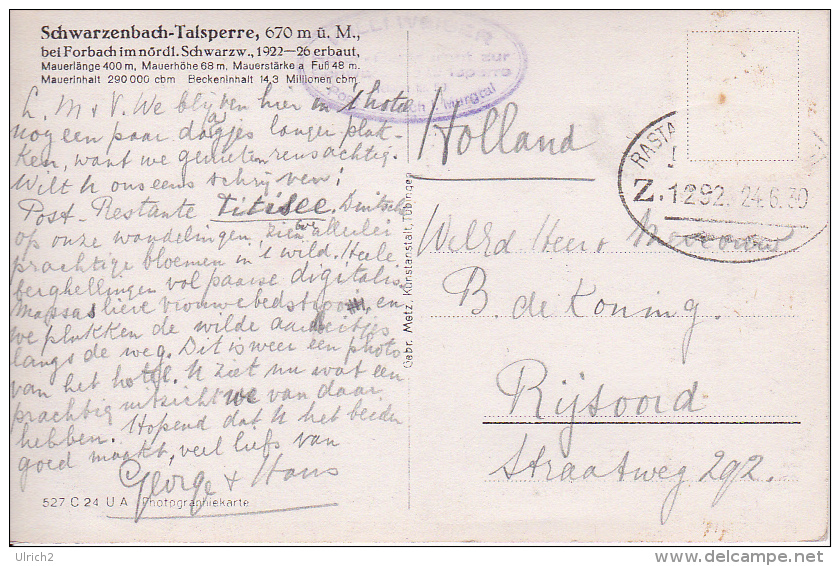 Schwarzenbach-Talsperre, 670 m ü. M.,
bei Forbach im nördl. Schwarzw., 1922—26 erbaut,
Mauerlänge 400 m, Mauerhöhe 68 m, Mauerstärke a Fuß 48 m.
Mauerinhalt 290 000 cbm Beckeninhalt 14,3 Millionen cbm
L. M & V. We blijven hier in 't hotel
nog een paar dagjes langer plak-
ken, want we genieten reusachtig.
Wilt U ons eens schrijven!
Post-Restante Titisee.
op onze wandelingen, zien we allerlei
prachtige bloemen in 't wild. Heele
berghellingen vol paarse digitalis.
Massa's lieve vrouwebedstrooi, en
we plukken de wilde aardbeitjes
langs de weg. Dit is weer een photo
van het hotel. U ziet nu wat een
prachtig uitzicht we van daar
hebben. Hopend dat U het beiden
goed maakt, veel liefs van
George & Hans
527 C 24 U A Photographiekarte
Gebr. Metz, Kunstanstalt, Tübingen
Holland
RASTA
Z. 1292 24.6.30
Weled Heer & Mevrouw
B. de Koning.
Rijsoord
Straatweg 292.
Ulrich2
delcampe.net